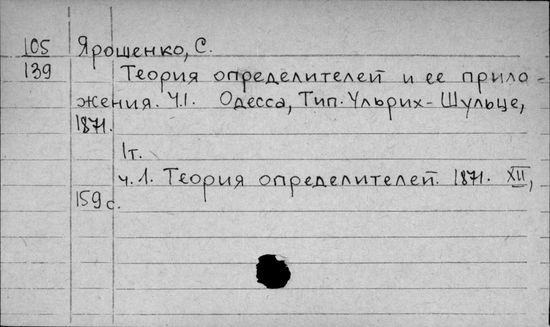 105 Ярошенко, С.
139 Теория определителей и ее прило-
жения. Ч.1. Одесса, Тип. Ульрих-Шульце,
1871.
1т.
ч. 1. Теория определителей. 1871. XII,
159 с.